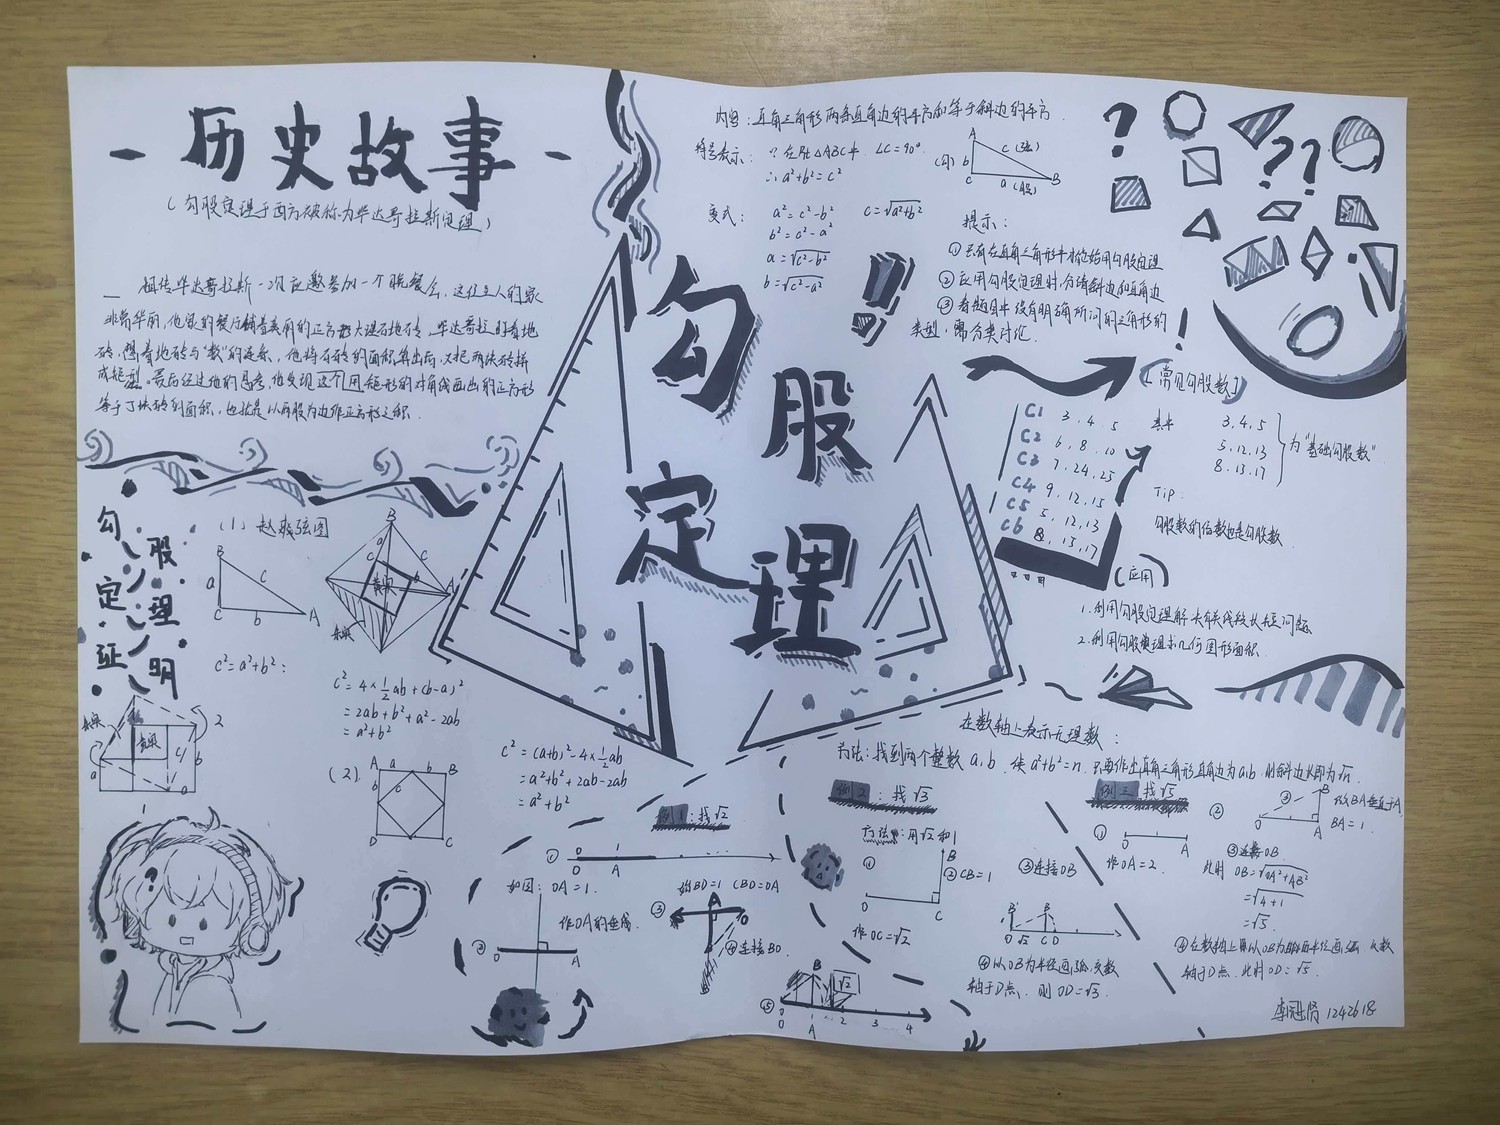 历史故事
(勾股定理于西方被称为毕达哥拉斯定理)
相传毕达哥拉斯一次应邀参加一个晚餐会,这位主人的家
非常华丽,他家的餐厅铺着美丽的正方形大理石地砖,毕达哥拉斯看地
砖,想着地砖与"数"的连系,他将石砖的面积算出后,又把两块砖拼
成矩型。最后经过他的思考,他发现这个用矩形的对角线画出的正方形
等于了块砖到面积,也就是以两股为边作正方形之积.
勾股定理
内容:直角三角形两条直角边的平方和等于斜边的平方.
符号表示:
∵在Rt△ABC中 ∠C=90°
∴a²+b²=c²
A
c(弦)
(勾)b
C a(股) B
变式:
a²=c²-b² c=√a²+b²
b²=c²-a²
a=√c²-b²
b=√c²-a²
提示:
①只有在直角三角形中才能始用勾股定理
②应用勾股定理时,分清斜边和直角边
③看题目中没有明确所问的三角形的
类型,需分类讨论.
[常见勾股数]
C1 3.4.5
C2 6.8.10
C3 7.24.25
C4 9.12.15
C5 5.12.13
C6 8.15.17
其中
3.4.5
5.12.13
8.15.17
为"基础勾股数"
Tip:
勾股数的倍数也是勾股数
(应用)
1.利用勾股定理解决有关线段长短问题
2.利用勾股定理求几何图形面积
勾股定理证明
(1)赵爽弦图
B
a c
C b A
B
c c
A
黄实
朱实
c²=a²+b²:
c²=4×½ab+(b-a)²
=2ab+b²+a²-2ab
=a²+b²
朱实
黄实
2
a b
a
(2).
A a b B
b c
D C
c²=(a+b)²-4×½ab
=a²+b²+2ab-2ab
=a²+b²
在数轴上表示无理数:
方法:找到两个整数a,b,使a²+b²=n.只要作出直角三角形直角边为a,b,则斜边长即为√n.
例1:找√2
① 0 1
A
如图:OA=1.
作OA的垂线.
② O A
始BD=1 (BD=OA
③ A O
④连接BO.
B
⑤ 0 1 2 3 4
B √2
A
例2:找√3
方法:用√2和1
①
B
②CB=1
O C
作OC=√2
③连接OB
B
O √2 C D
④以OB为半径画弧,交数
轴于D点,则OD=√3.
例三 找√5
①
O A
作OA=2.
②
B
③
O A
做BA垂直于A
BA=1.
③连接OB
此时 OB=√OA²+AB²
=√4+1
=√5.
轴于D点,此时OD=√5.
1242618